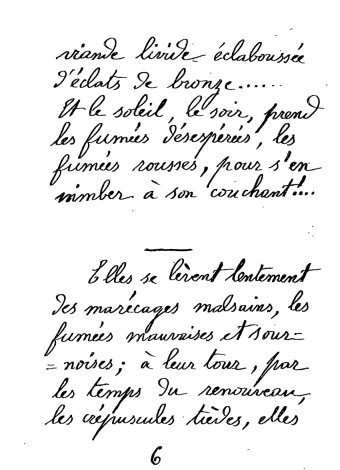 viande livide éclaboussée
d'éclats de bronze......
Et le soleil, le soir, prend
les fumées désespérées, les
fumées rousses, pour s'en
nimber à son couchant!...
Elles se lèvent lentement
des marécages malsains, les
fumées mauvaises et sour=
=noises; à leur tour, par
les temps du renouveau,
les crépuscules tièdes, elles
6